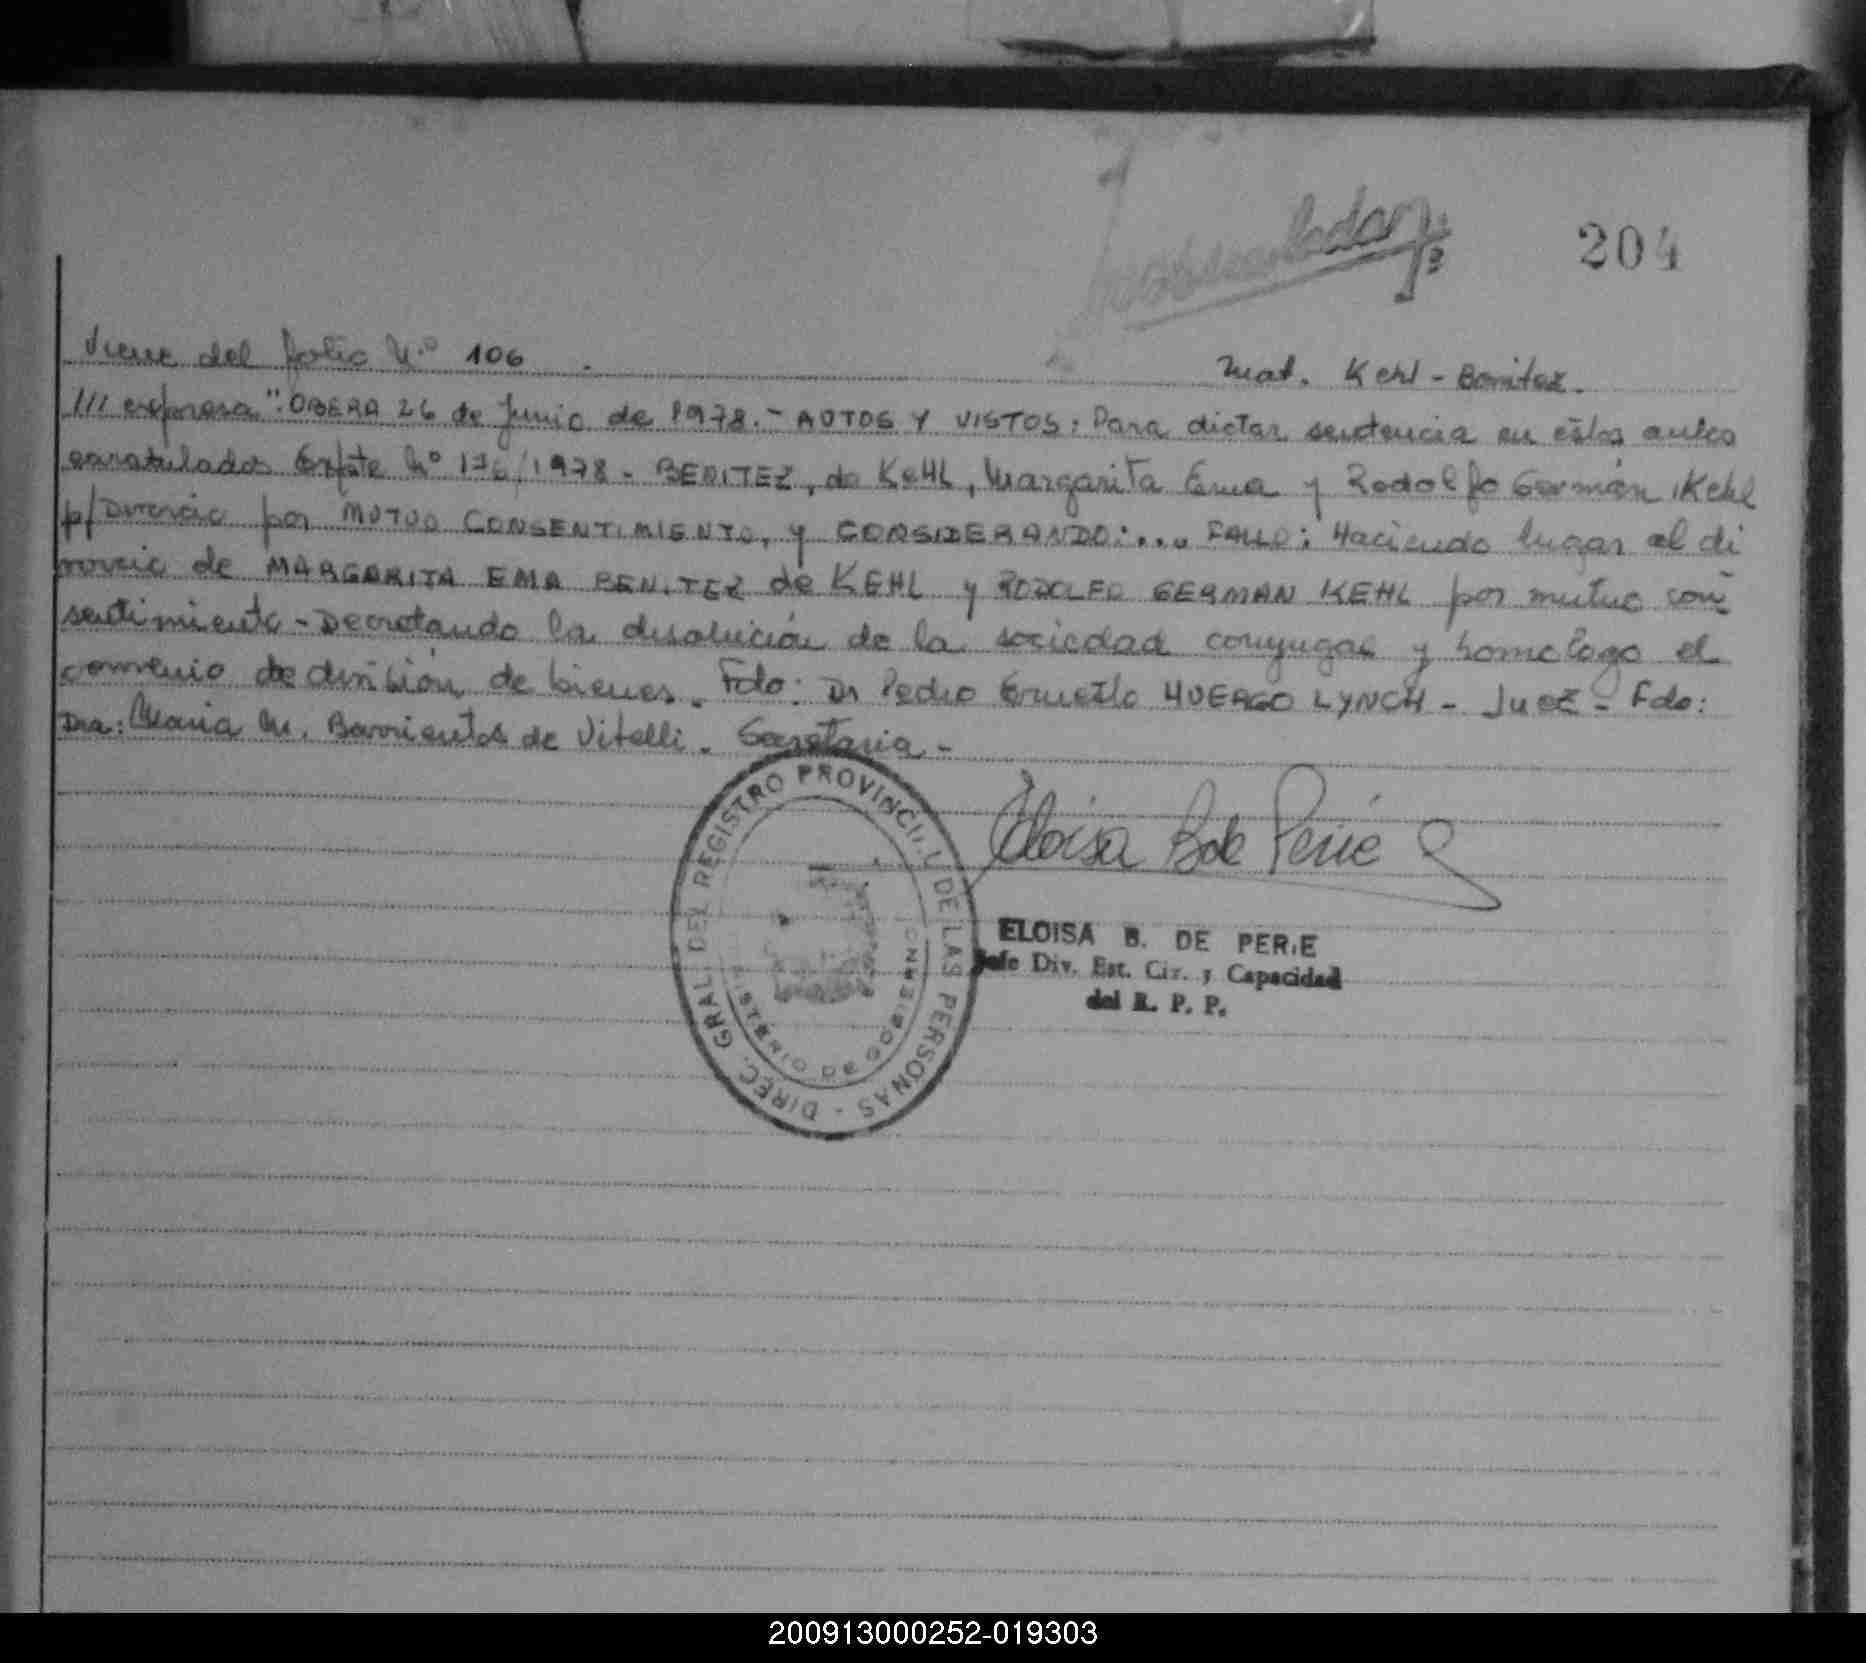 204
Viene del folio N.º 106 .
Mat. Kehl - Benitez.
/// expresa": OBERA 26 de Junio de 1978.- AUTOS Y VISTOS: Para dictar sentencia en estos autos
caratulados Expte Nº 176/1978 - BENITEZ, de KeHL, Margarita Ema y Rodolfo Germán Kehl
p/Divorcio por MUTUO CONSENTIMIENTO, y CONSIDERANDO:... FALLO: Haciendo lugar al di
vorcio de MARGARITA EMA BENITEZ de KEHL y RODOLFO GERMAN KEHL por mutuo con
sentimiento - Decretando la disolución de la sociedad conyugal y homologo el
convenio de división de bienes. Fdo: Dr Pedro Ernesto HUERGO LYNCH - Juez - Fdo:
Dra: Maria M. Barrientos de Vitelli. Secretaria -
DIREC. GRAL. DEL REGISTRO PROVINCIAL DE LAS PERSONAS -
MINISTERIO DE GOBIERNO
Eloisa B de Perié
ELOISA B. DE PERIE
Jefe Div. Est. Civ. y Capacidad
del R. P. P.
200913000252-019303